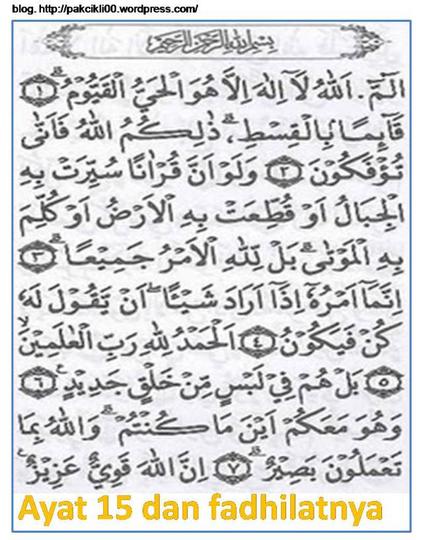 blog. http://pakcikli00.wordpress.com/
بِسْمِ اللّٰهِ الرَّحْمٰنِ الرَّحِيْمِ
الٓمّٓ. اَللّٰهُ لَآ اِلٰهَ اِلَّا هُوَ الْحَيُّ الْقَيُّوْمُ ۙ ﴿١﴾
قَآئِمًا بِالْقِسْطِ ۗ ذٰلِكُمُ اللّٰهُ فَاَنّٰى
تُؤْفَكُوْنَ ﴿٢﴾ وَلَوْ اَنَّ قُرْاٰنًا سُيِّرَتْ بِهِ
الْجِبَالُ اَوْ قُطِّعَتْ بِهِ الْاَرْضُ اَوْ كُلِّمَ
بِهِ الْمَوْتٰى ۗ بَلْ لِلّٰهِ الْاَمْرُ جَمِيْعًا ۗ ﴿٣﴾
اِنَّمَآ اَمْرُهٗٓ اِذَآ اَرَادَ شَيْئًا ۙ اَنْ يَقُوْلَ لَهٗ
كُنْ فَيَكُوْنُ ﴿٤﴾ اَلْحَمْدُ لِلّٰهِ رَبِّ الْعٰلَمِيْنَ ۙ
﴿٥﴾ بَلْ هُمْ فِيْ لَبْسٍ مِّنْ خَلْقٍ جَدِيْدٍ ۚ ﴿٦﴾
وَهُوَ مَعَكُمْ اَيْنَ مَا كُنْتُمْ ۗ وَاللّٰهُ بِمَا
تَعْمَلُوْنَ بَصِيْرٌ ۗ ﴿٧﴾ اِنَّ اللّٰهَ قَوِيٌّ عَزِيْزٌ ۚ
Ayat 15 dan fadhilatnya